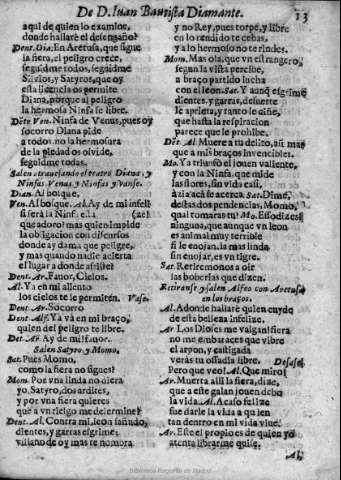 De D. Iuan Bautista Diamante. 13
aqui de quien lo examine,
donde hallarè el desengaño?
Dent. Dia. En Aretusa, que sigue
la fiera, el peligro crece,
seguidme todos, seguidme
Silvios, y Satyros, que oy
esta licencia os permite
Diana, porque al peligro
la hermosa Ninfa se libre.
Dẽtr. Ven. Ninfa de Venus, pues oy
socorro Diana pide
a todos, no la hermosura
de la piedad os olvide,
seguidme todas.
Salen atravesando el teatro Diana, y
Ninfas, Venus, y Ninfas, y vanse.
Dian. Al bosque,
Ven. Al bosque. Al. Ay de mi infeli
si serà la Ninfa
que adoro? mas quien impide
la obligacion con discursos
donde ay dama que peligre,
y mas quando nadie acierta
el lugar a donde assiste?
Dent. Ar. Favor, Cielos.
Al. Ya en mi aliento
los cielos te le permiten. Vase.
Dent. Ar. Socorro
Dent. Alf. Ya và en mi braço,
quien del peligro te libre.
Det. Ar. Ay de mi! favor.
Salen Satyro, y Momo.
Sat. Pues Momo,
como la fiera no sigues?
Mom. Por vna linda no diera
yo, Satyro, dos ardites,
y por vna fiera quieres
que a vn riesgo me determine?
Dent. Al. Contra mi, leon sañudo,
dientes, y garras esgrime;
villano de oy mas te nombra
y no Rey, pues torpe, y libre
en lo rendido te cebas,
y a lo hermoso no te rindes.
Mom. Mas ola, que vn estrangero,
segun la vista percibe,
a braço partido lucha
con el leon. Sat. Y aunq̃ esgrime
dientes, y garras, de suerte
le aprieta, y tanto le ciñe,
que hasta la respiracion
parece que le prohibe.
Dẽt. Al. Muere a tu delito, assi mas
que a mis braços invencibles.
Mo. Ya triunfò el jouen valiente,
y con la Ninfa, que mide
las flores, sin vida casi,
àzia acà se acerca. Sat. Dime,
destas dos pendencias, Momo,
qual tomaras tu? Mo. Esso dizes?
ninguna, que aunque vn leon
es animal muy terrible
si le enojan, la mas linda
sin enojar, es vn tigre.
Sat. Retiremonos a oir
las boberias que dizen.
Retiranse, y salen Alfeo con Aretusa
en los braços.
Al. Adonde hallarè quien cuyde
de esta belleza infelize.
Ar. Los Dioses me valgan! fiera
no me embaraces que vibre
el arpon, y castigada
veràs tu ossadia libre. Desase.
Pero que veo! Al. Que miro!
Ar. Muerta alli la fiera, dize,
que a este galan jouen debo
la vida. Al. Acaso felize
fue darle la vida a quien
tan dentro en mi vida viue.
Ar. Este el propio es de quien yo
atenta librarme quise.
Al.
Biblioteca Regional de Madrid